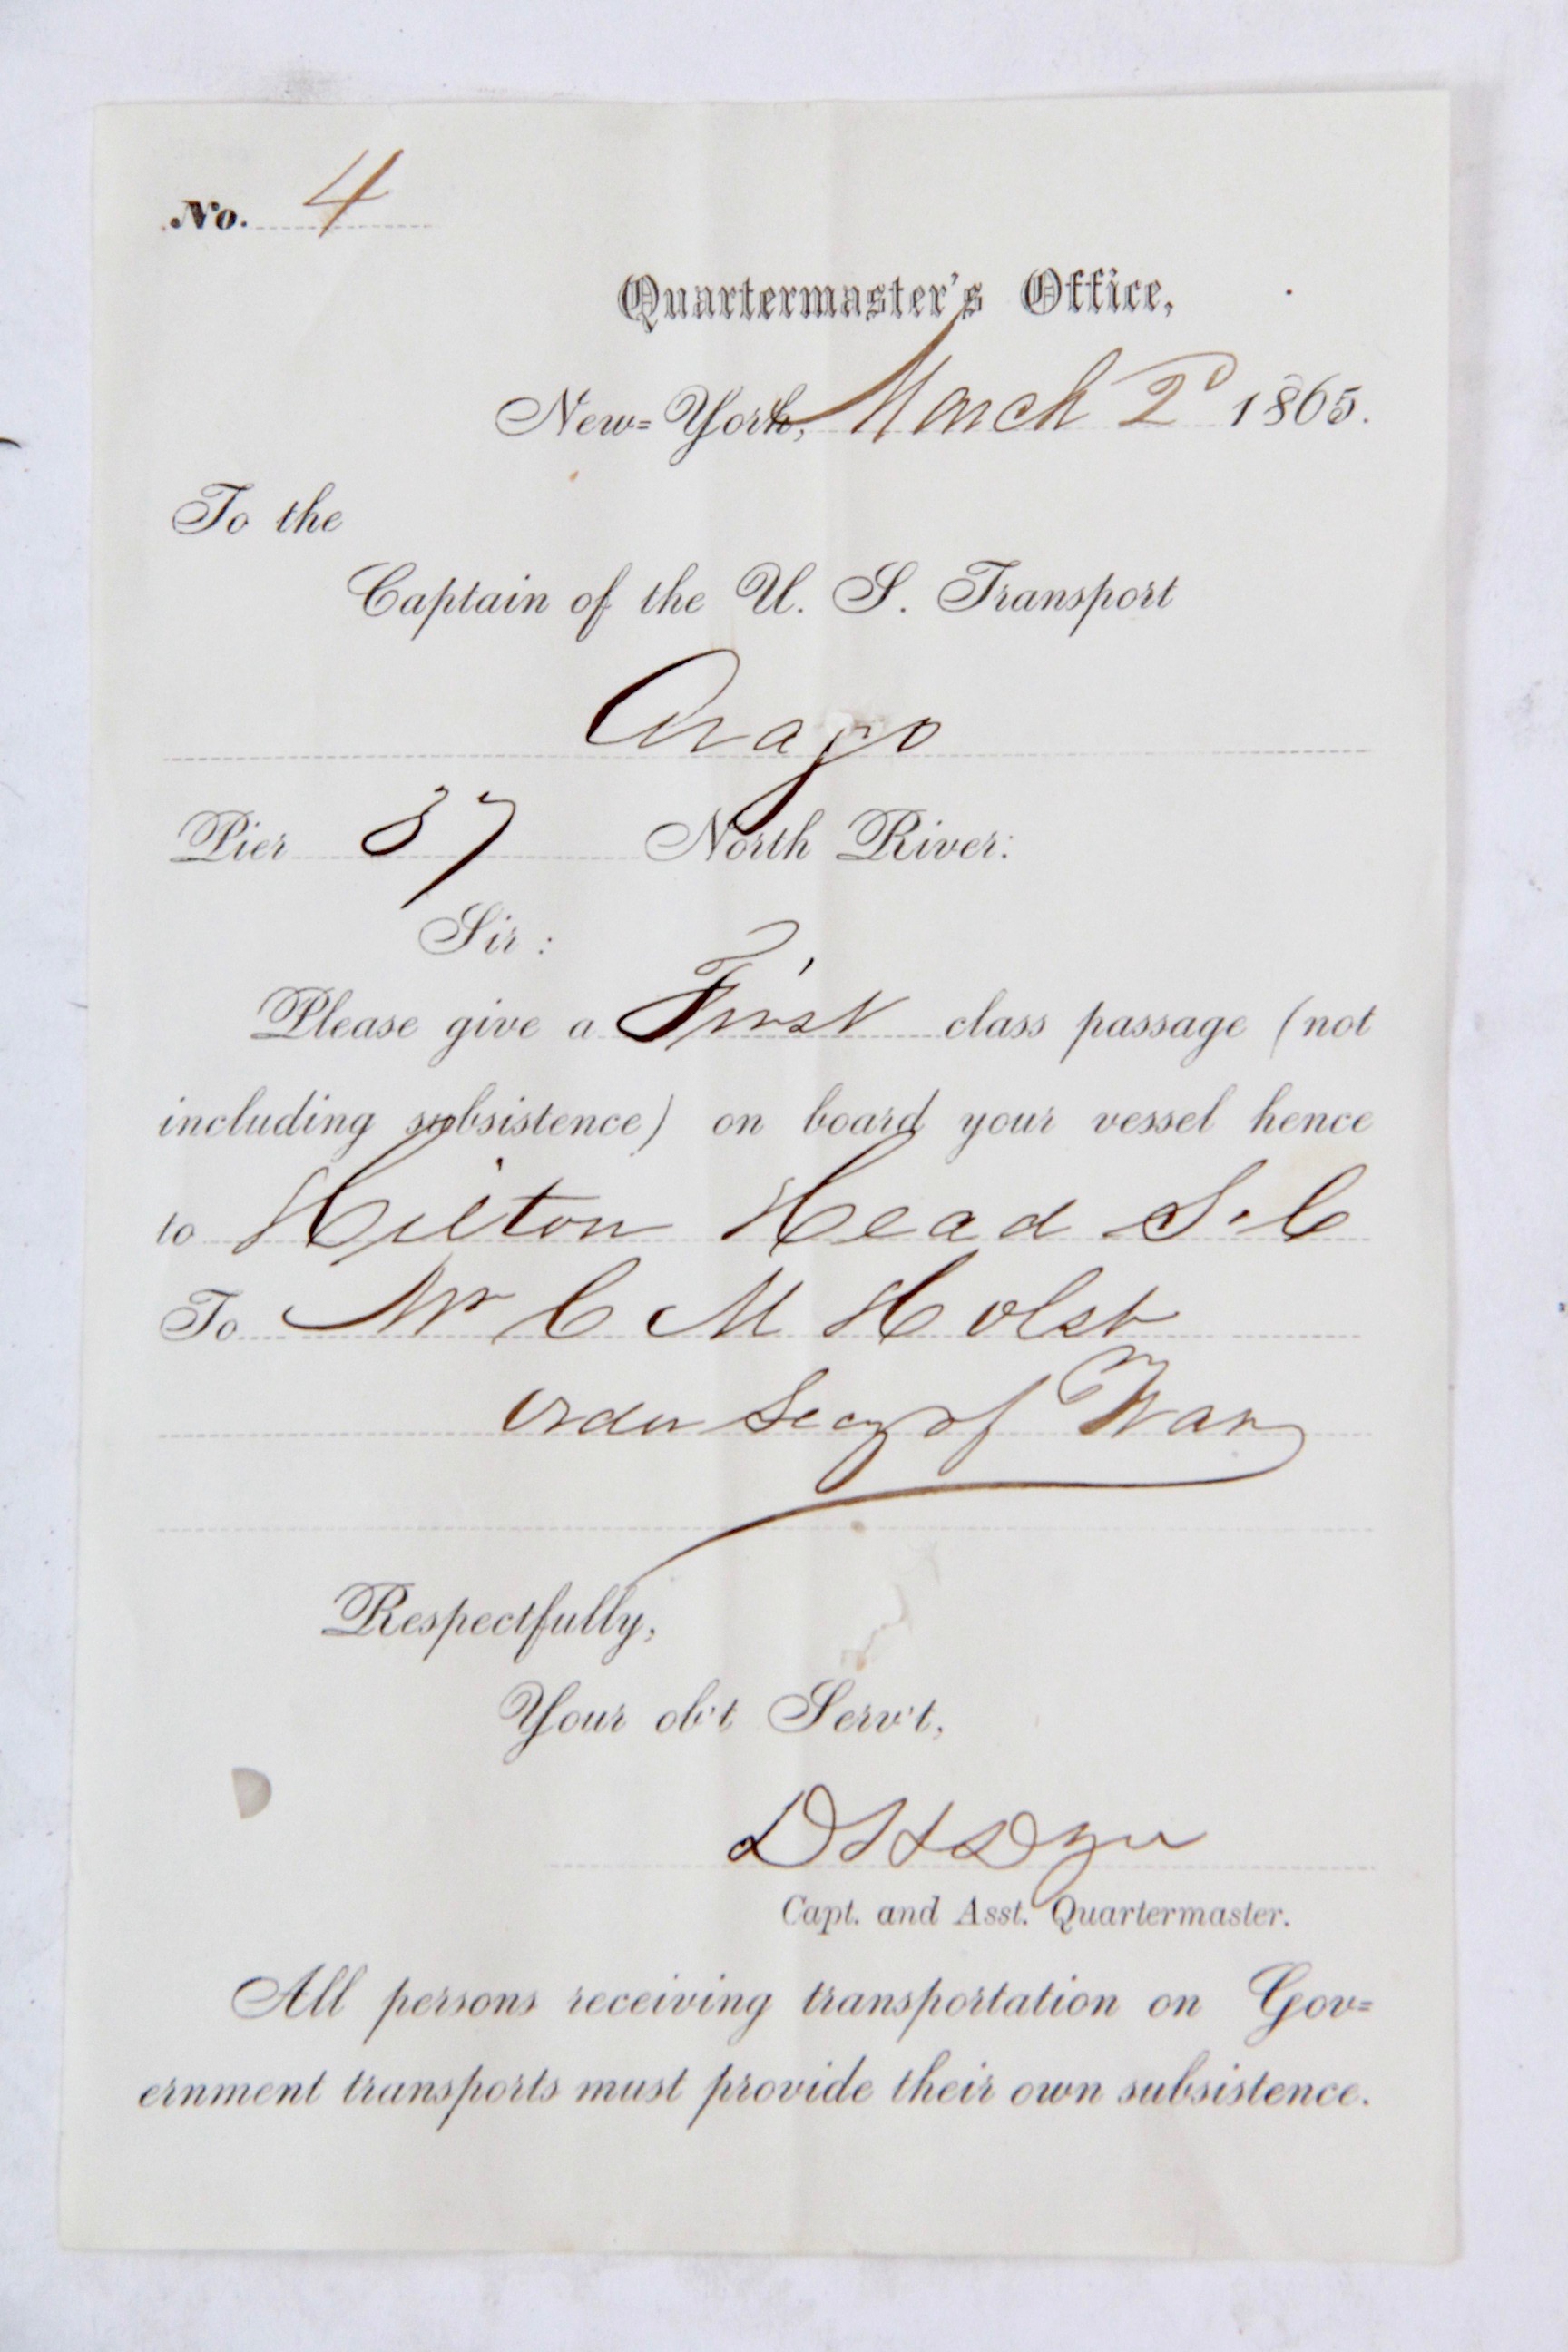 No. 4
Quartermaster's Office,
New=York, March 2d 1865.
To the
Captain of the U. S. Transport
Arago
Pier 37 North River:
Sir:
Please give a First class passage (not
including subsistence) on board your vessel hence
to Hilton Head S.C
To Mr C M Holst
Order Secy of War
Respectfully,
Your ob't Serv't,
D H Dyer
Capt. and Asst. Quartermaster.
All persons receiving transportation on Gov=
ernment transports must provide their own subsistence.